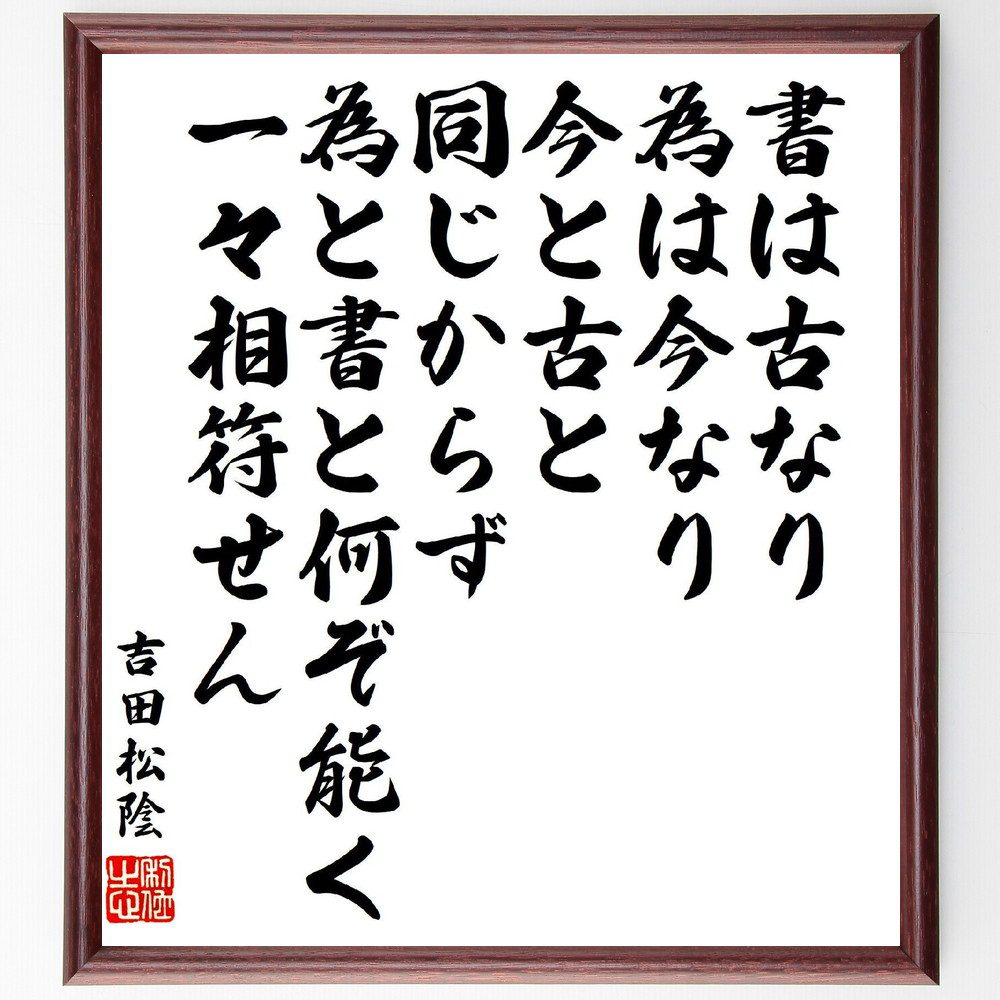 書は古なり
為は今なり
今と古と
同じからず
為と書と何ぞ能く
一々相符せん
吉田松陰